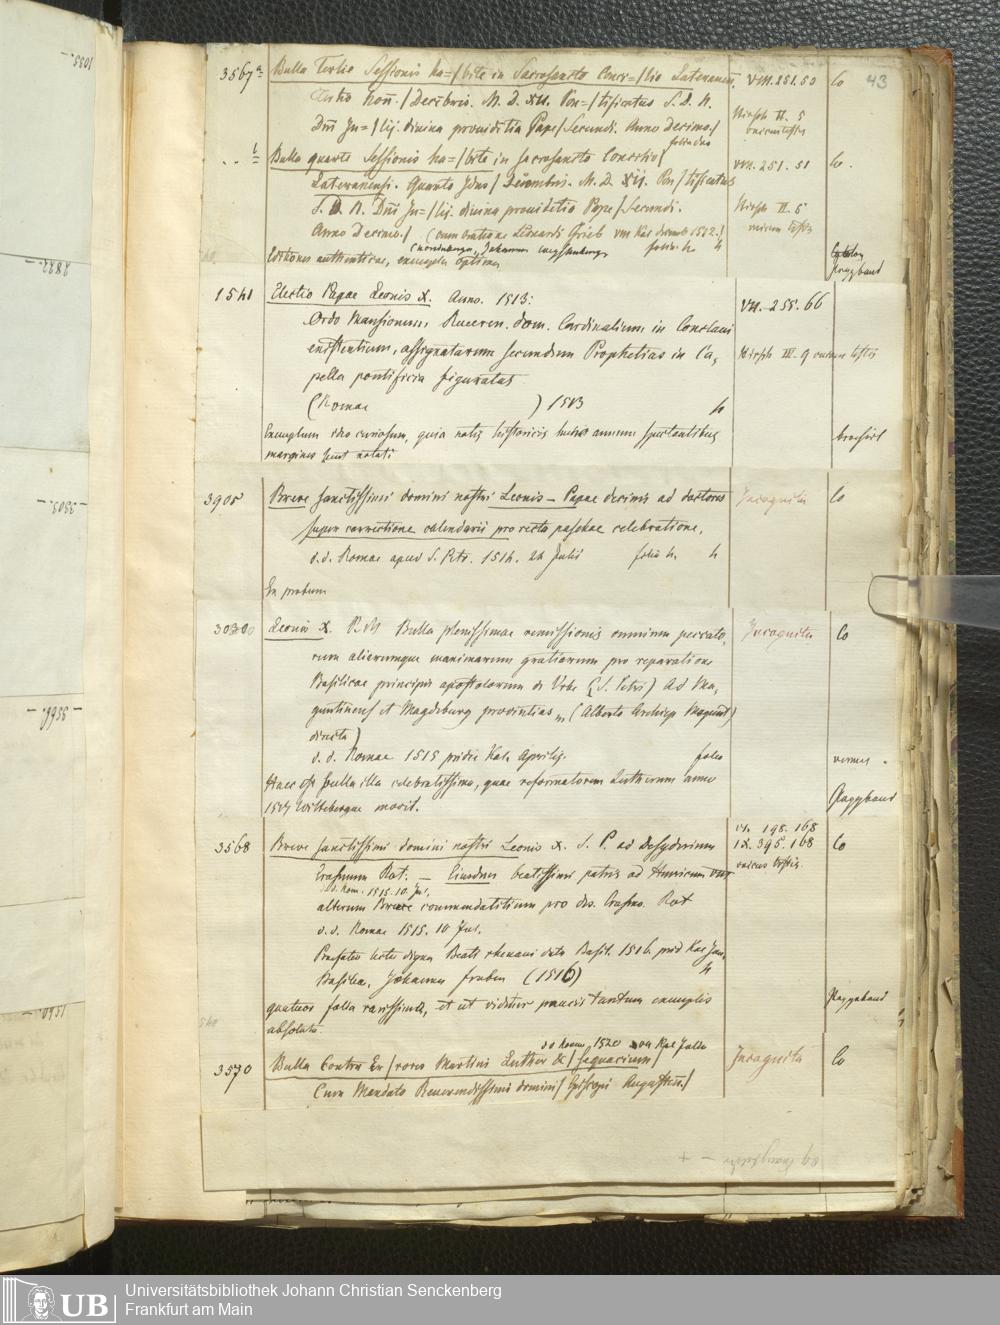 43
3567 a Bulla Tertie Sessionis ha=/bite in Sacrosancto Conci=/lio Lateranen. VII. 251. 50 Co
Tertio Non./ Decembris. M. D. XII. Pon=/tificatus S. D. N.
Dni Ju=/lij. divina providetia Pape/ Secundi. Anno Decimo./
Hirsch II. 5
b Bulla quarte Sessionis ha=/bite in sacrosancto Concilio/ VII. 251. 51 Co.
Lateranensi. Quarto Idus/ Decembris. M. D. XII. Pon/tificatus
S. D. N. Dni Ju=/lij. divina providetia Pape/ Secundi. Hirsch II. 5
Anno Decimo./ (cum oratione
Editiones authenticae, exempla optima
Pappband
1541 Electio Papae Leonis X. Anno. 1513: VII. 255. 66
Ordo Mansionum, Reveren. dom. Cardinalium in Conclavi
existentium, assignatarum secundum Prophetias in Ca, Hirsch III. 9
pella pontificia figuratas
(Romae ) 1513 4
Exemplum curiosum, quia notis historicis annum spectantibus brochirt
margines sunt notati
3905 Breve sanctissimi domini nostri Leonis - Papae decimi ad doctores Incognita Co
super correctione calendarii pro recta paschae celebratione.
d. d. Romae apud S. Petr. 1514. 24 Julii folia 4. 4
Ex probum
Leonis X. P. M Bulla plenissimae remissionis omnium peccato, Incognita Co
rum aliarumque maximarum gratiarum pro reparatione
Basilicae principis apostolorum de Urbe (S. Petri) ad Ma,
guntinens et Magdeburg provintias (Alberto Archiep Magunt)
directa)
d. d. Romae 1515 pridie Kal. Aprilis. folio
Haec est bulla illa celebratissima, quae reformatorem Lutherum anno Pappband
1517 Wittebergae movit.
3568 Breve sanctissimi domini nostri Leonis X. S. P. ad Desyderium VI. 198. 168 IX. 395. 168 Co
Erasmum Rot. — Eiusdem beatissimi patris ad Henricum unicus testis.
d. Rom. 1515. 10 Jul.
alterum Breve commendatitium pro des. Erasmo. Rot
d. d. Romae 1515. 10 Jul.
Praefatio Beati rhenani data Basil. 1516. prid Kal Jan.
Basilea, Johannes froben (1516) 4
quatuor folia rarissima, et ut videtur paucis tantum exemplis Pappband
absoluta
3570 Bulla Contra Er/rores Martini Luther &/ sequacium/ Incognita Co
Cum Mandato Reverendissimi domini/ Episcopi Augusten./
1035.—
2822.—
—3303.—
—3566.—
1540.—
UB Universitätsbibliothek Johann Christian Senckenberg
Frankfurt am Main